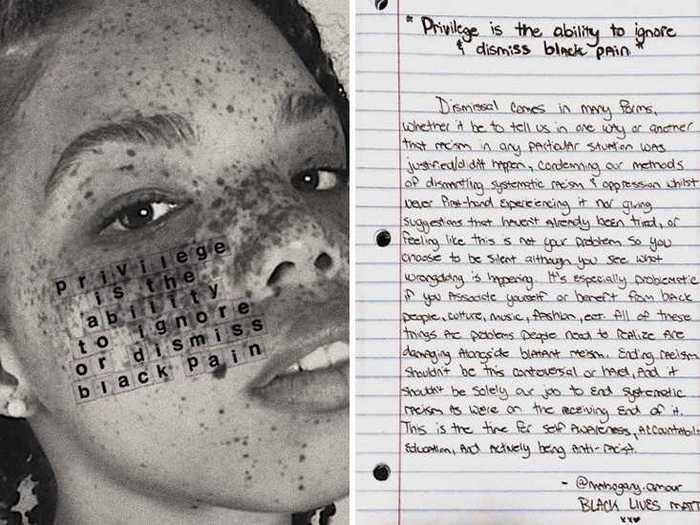 privilege
is the
ability
to ignore
or dismiss
black pain
"Privilege is the ability to ignore
& dismiss black pain"
Dismissal comes in many forms,
whether it be to tell us in one way or another
that racism in any particular situation was
justified/didn't happen, condemning our methods
of dismantling systematic racism & oppression whilst
never first-hand expereiencing it nor giving
suggestions that haven't already been tried, or
feeling like this is not your problem so you
choose to be silent although you see what
wrongdoing is happening. It's especially problematic
if you associate yourself or benefit from black
people, culture, music, fashion, ect. All of these
things are problems people need to realize are
damaging alongside blatant racism. Ending racism
shouldn't be this controversal or hard, And it
shouldn't be solely our job to end systematic
racism as were on the receiving end of it.
This is the time for self awareness, Accountabili
Education, And Actively being Anti-racist.
- @mahogany.amour
BLACK LIVES MATT